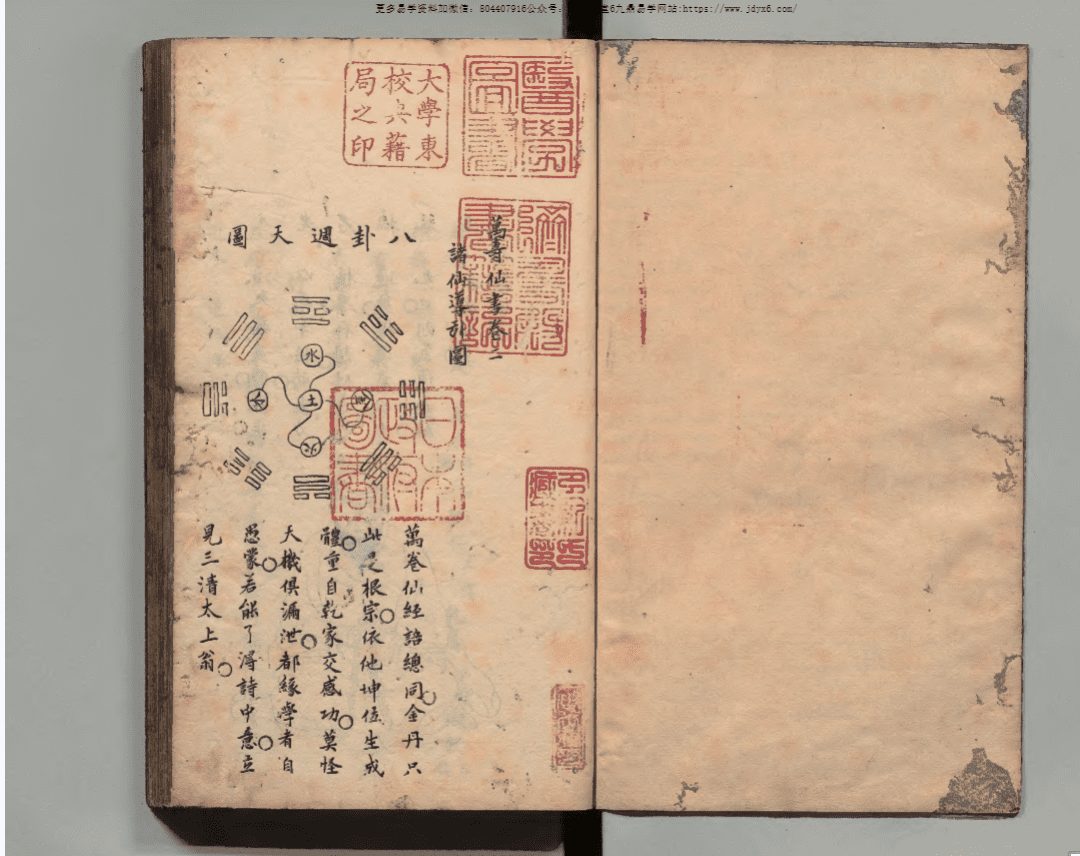 更多易学资料加微信：804407916公众号：
6九鼎易学网站:https://www.jdyx6.com/
醫學圖書
大學東
校典藉
局之印
躋壽殿書籍記
萬壽仙書卷二
諸仙導引圖
八卦週天圖
水
木
土
金
火
日本政府圖書
萬卷仙經語總同金丹只
此是根宗依他坤位生成
體重自乾家交感功莫怪
天機俱漏泄都緣學者自
愚蒙若能了得詩中意立
見三清太上翁